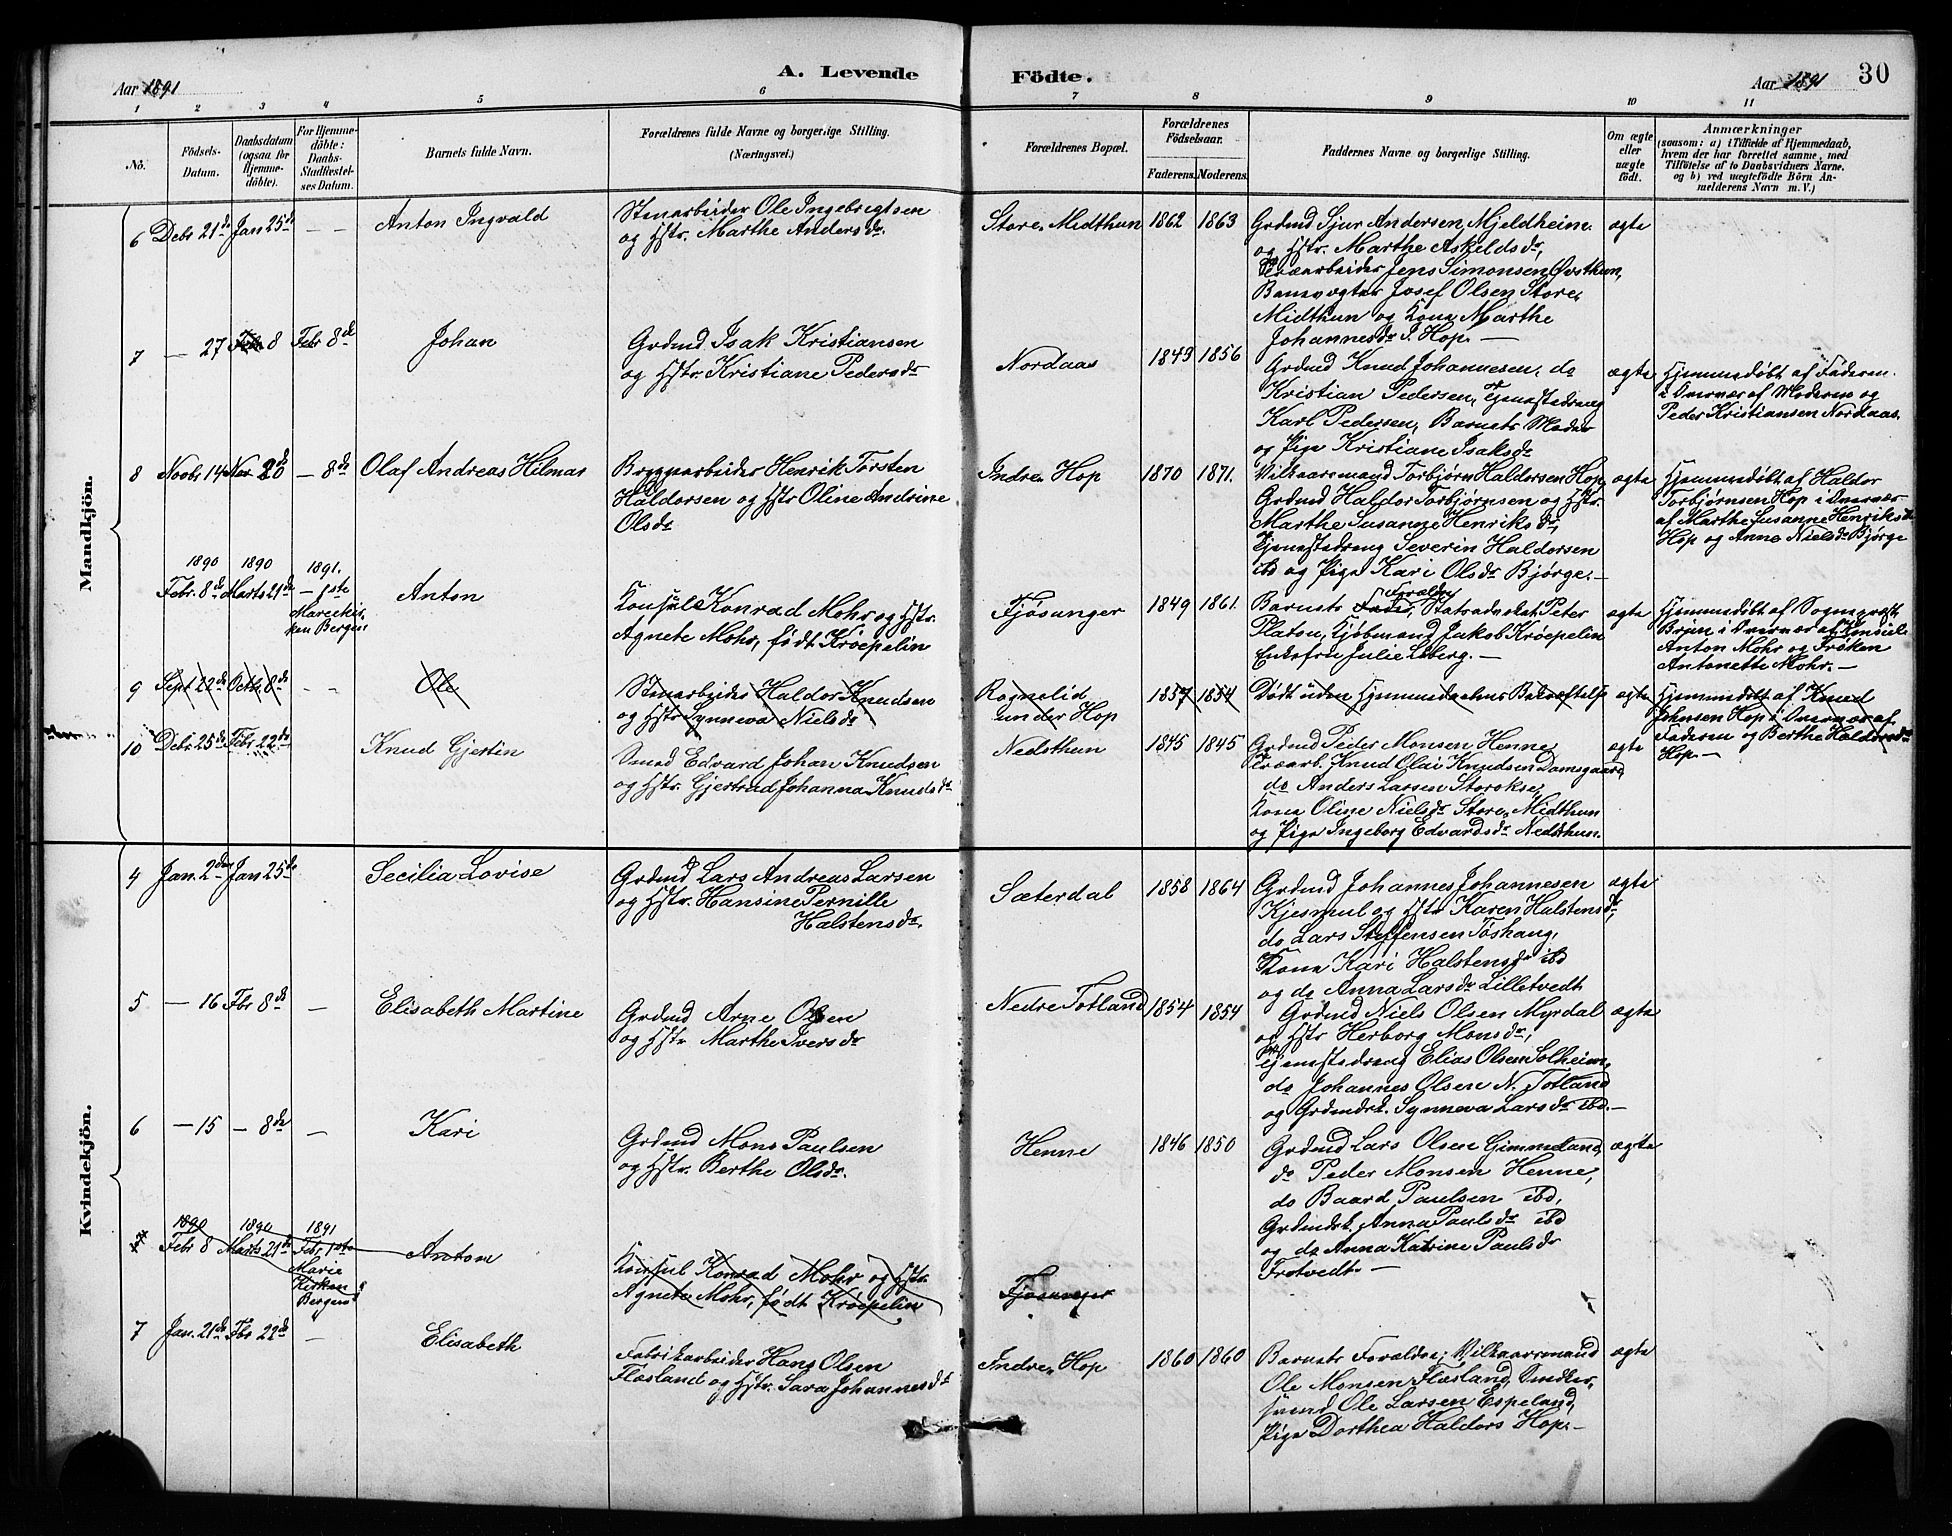 Aar 1891
A. Levende Födte.
Aar 1891 30
1 2 3 4 5 6 7 8 9 10 11
No.
Födsels-
Datum.
Daabsdatum
(ogsaa for
Hjemme-
döbte).
For Hjemme-
döbte:
Daabs-
Stadfæstel-
ses Datum.
Barnets fulde Navn.
Forældrenes fulde Navne og borgerlige Stilling.
(Næringsvei.)
Forældrenes Bopæl.
Forældrenes
Födselsaar.
Faderens. Moderens.
Faddernes Navne og borgerlige Stilling.
Om ægte
eller
uægte
födt.
Anmærkninger
(saasom: a) i Tilfælde af Hjemmedaab,
hvem der har forrettet samme, med
Tilföielse af to Daabsvidners Navne.
og b) ved uægtefödte Börn An-
melderens Navn m. V.)
Mandkjön.
6 Debr 21de Jan 25de – – Anton Ingvald
Stenarbeider Ole Ingebrigtsen
og Hstr. Marthe Andersdr.
Store Midthun 1862 1863
Grdmd Sjur Andersen Mjeldheim
og Hstr. Marthe Askeldsdr,
Træarbeider Jens Simonsen Øvsthun,
Banevogter Josef Olsen Store
Midthun og Kone Marthe
Johannesdr I. Hop. –
ægte
7 – 27 Feb 8 Febr 8de Johan
Grdmd Isak Kristiansen
og Hstr. Kristiane Pedersdr
Nordaas 1849 1856
Grdmd Knud Johannesen, do
Kristian Pedersen, Tjenestedreng
Karl Pedersen, Barnets Moder
og Pige Kristiane Isaksdr
ægte
Hjemmedøbt af Faderen
i Overvær af Moderen og
Peder Kristiansen Nordaas.
8 Novbr 14 Nov 20 – 8de Olaf Andreas Hilmar
Bryggearbeider Henrik Torsten
Haldorsen og Hstr Oline Andrine
Olsdr
Indre Hop 1870 1871.
Vilkaarsmand Torbjørn Haldorsen Hop,
Grdmd Haldor Torbjørnsen og Hstr.
Marthe Susanne Henriksdr,
Tjenestedreng Severin Haldorsen
ibd og Pige Kari Olsdr Bjørge. –
ægte
Hjemmedøbt af Haldor
Torbjørnsen Hop i Overvær
af Marthe Susanne Henriksdr
Hop og Anne Nielsdr Bjørge
1890 1890 1891.
Febr. 8de Marts 21de – 1ste Anton
Mariekir-
ken Bergen
Konsul Konrad Mohr og Hstr.
Agnete Mohr, født Krøepelin
Fjøsanger 1849 1861.
Barnets Forældre, Statsadvokat Peter
Platou, Kjøbmand Jakob Krøepelin
Enkefru Julie Isberg. –
ægte
Hjemmedøbt af Sognepræst
Brun i Overvær af Konsul
Anton Mohr og Frøken
Antonette Mohr. –
9 Sept 22de Octbr. 8de – – Ole
Stenarbeider Haldor Knudsen
og Hstr Synneva Nielsdr
Rognelid
under Hop
1857 1854
Dødt uden Hjemmedaabens Bekræftelse
ægte
Hjemmedøbt af Knud
Johnsen Hop i Overvær af
Faderen og Berthe Haldorsdr
Hop. –
10 Debr. 25de Febr 22de Knud Gjertin
Smed Edvard Johan Knudsen
og Hstr. Gjertrud Johanna Knudsdr
Nedsthun 1845 1845
Grdmd Peder Monsen Henne,
Træarb. Knud Olai Knudsen Damsgaard,
do Anders Larsen Storokse,
Kone Oline Nielsdr Store Midthun
og Pige Ingeborg Edvardsdr Nedsthun.
ægte
Kvindekjön.
4 Jan. 2den Jan 25de Secilia Lovise
Grdmd Lars Andreas Larsen
og Hstr. Hansine Pernille
Halstensdr.
Sæterdal 1858 1864
Grdmd Johannes Johannesen
Kjesmul og Hstr Karen Halstensdr,
do Lars Steffensen Tøshaug,
Kone Kari Halstensdr ibd
og do Anna Larsdr Lilletvedt
ægte
5 – 16 Fbr 8de – Elisabeth Martine
Grdmd Arne Olsen
og Hstr Marthe Iversdr
Nedre Totland 1854 1854
Grdmd Niels Olsen Myrdal
og Hstr Herborg Monsdr,
Tjenestedreng Elias Olsen Solheim,
do Johannes Olsen N. Totland
og Grdmdsk. Synneva Larsdr ibd. –
ægte
6 – 15 – 8de – Kari
Grdmd Mons Paulsen
og Hstr. Berthe Olsdr.
Henne 1846 1850
Grdmd Lars Olsen Gimmeland,
do Peder Monsen Henne,
do Baard Paulsen ibd,
Grdmdsk. Anna Paulsdr ibd
og do Anna Katrine Paulsdr
Frotvedt –
ægte
1890 1890 1891
7 Febr 8 Marts 21de Febr 1ste Anton
Marie
Kirken
Bergen
Konsul Konrad Mohr og Hstr.
Agnete Mohr, født Krøepelin
Fjøsanger
7 Jan. 21de Fbr 22de – Elisabeth
Fabrikarbeider Hans Olsen
Flæsland og Hstr. Sara Johannesdr
Indre Hop 1860 1860
Barnets Forældre, Vilkaarsmand
Ole Monsen Flæsland, Snedker-
svend Ole Larsen Espeland,
Pige Dorthea Haldors Hop. –
ægte